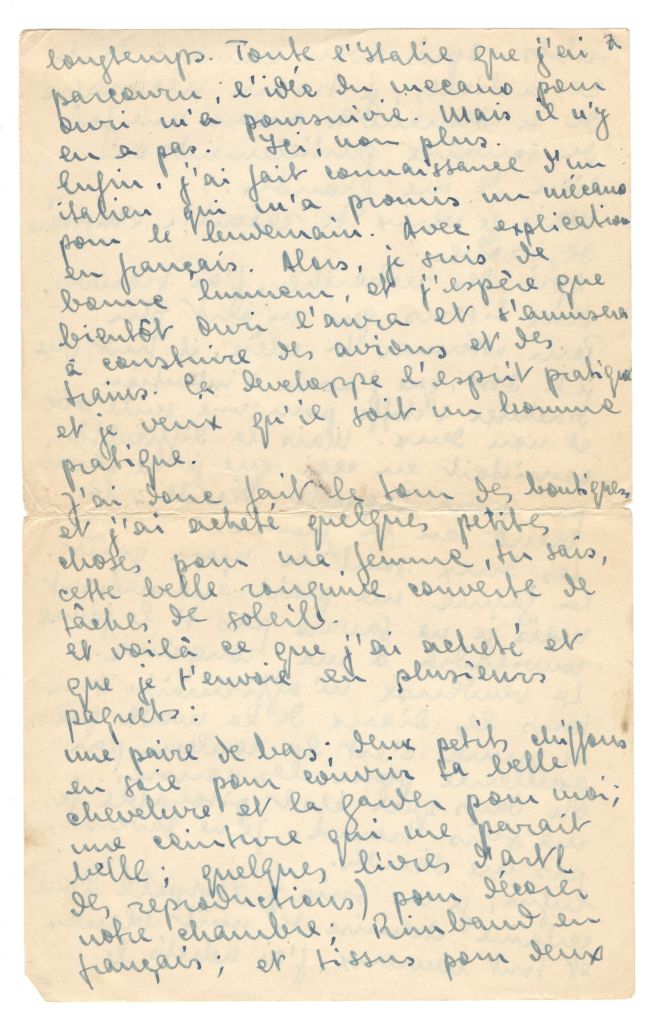 longtemps. Toute l'Italie que j'ai
parcouru, l'idée du mecano pour
Ouri m'a poursuivie. Mais il n'y
en a pas. Ici, non plus.
Enfin, j'ai fait connaissance d'un
italien qui m'a promis un mécano
pour le lendemain. Avec explication
en français. Alors, je suis de
bonne humeur, et j'espère que
bientôt Ouri l'aura et s'amusera
à construire des avions et des
trains. Ça developpe l'esprit pratique
et je veux qu'il soit un homme
pratique.
J'ai donc fait le tour des boutiques
et j'ai acheté quelques petites
choses pour ma femme, tu sais,
cette belle rouquine couverte de
tâches de soleil.
et voilà ce que j'ai acheté et
que je t'envoie en plusieurs
paquets:
une paire de bas; deux petits chiffons
en soie pour couvrir ta belle
chevelure et la garder pour moi;
une ceinture qui me parait
belle; quelques livres d'art (
des reproductions) pour décorer
notre chambre; Rimbaud en
français; et tissus pour deux